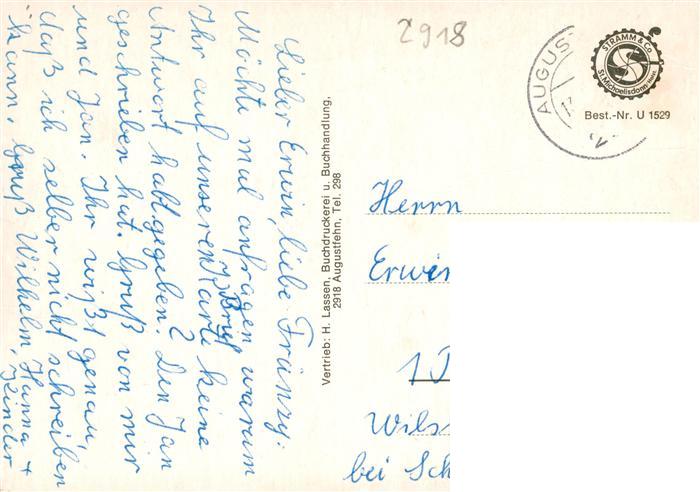 Lieber Erwin, liebe Fränzy.
Möchte mal anfragen warum
Ihr auf unseren Brief
Karte keine
Antwort habt gegeben? Den Jan
geschrieben hat. Gruß von mir
und Jan. Ihr wißt genau,
daß ich selber nicht schreiben
kann. Gruß Wilhelm, Hanna +
Kinder
Vertrieb: H. Lassen, Buchdruckerei u. Buchhandlung,
2918 Augustfehn, Tel. 298
2918
AUGUS
STRAMM & Co.
St. Michaelisdonn/Holst.
Best.-Nr. U 1529
Herrn
Erwi
1
Wils
bei Sch